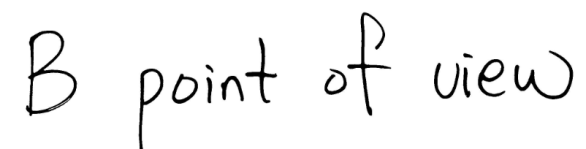 B point of view